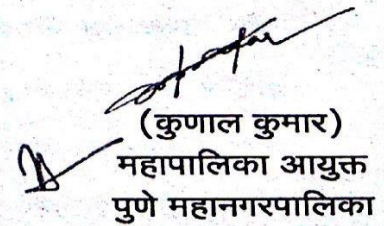 (कुणाल कुमार)
महापालिका आयुक्त
पुणे महानगरपालिका